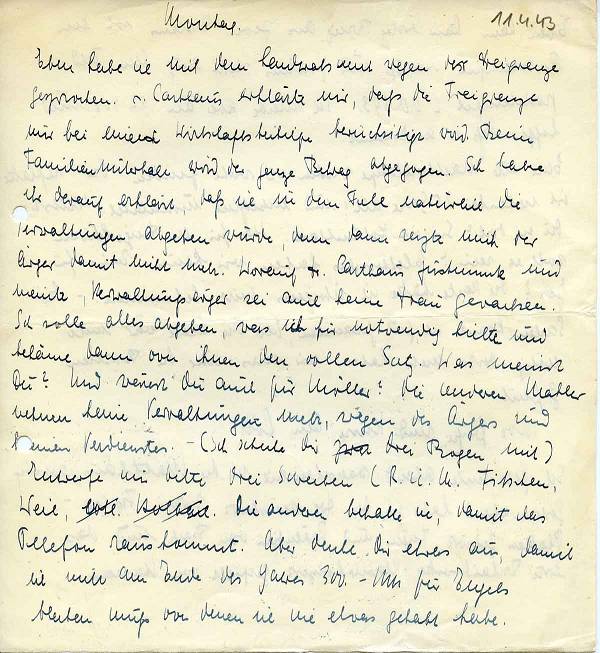 Montag. 11.4.43
Eben habe ich mit dem Landratsamt wegen der Freigrenze
gesprochen. v. Carthaus erklärte mir, daß die Freigrenze
nur bei Wirtschaftsbeihilfe berücksichtigt wird. Beim
Familienunterhalt wird der ganze Betrag abgezogen. Ich habe
ihr darauf erklärt, daß ich in dem Falle natürlich die
Verwaltungen abgeben würde, denn dann mich der
Ärger damit nicht mehr. Worauf Carthaus zustimmte und
meinte, Verwaltungsärger sei auch keine Frau gewachsen.
Ich solle alles abgeben, was ich für notwendig hielte und
bekäme dann von ihnen den vollen Satz. Was meinst
Du? Und was Du auch für Möller? Die anderen Makler
nehmen keine Verwaltungen mehr, wegen des Ärgers und
keinen Verdienstes. – (Ich schicke Dir drei Bogen mit)
Entwerfe mir bitte drei Schreiben (R. u. M. Fitschen,
Weil, . Die anderen behalte ich, damit das
Telefon rauskommt. Aber denke Dir etwas aus, damit
ich nicht am Ende des Jahres 300.- Mk für Engels
bleiben muß von denen ich nie etwas gehabt habe.